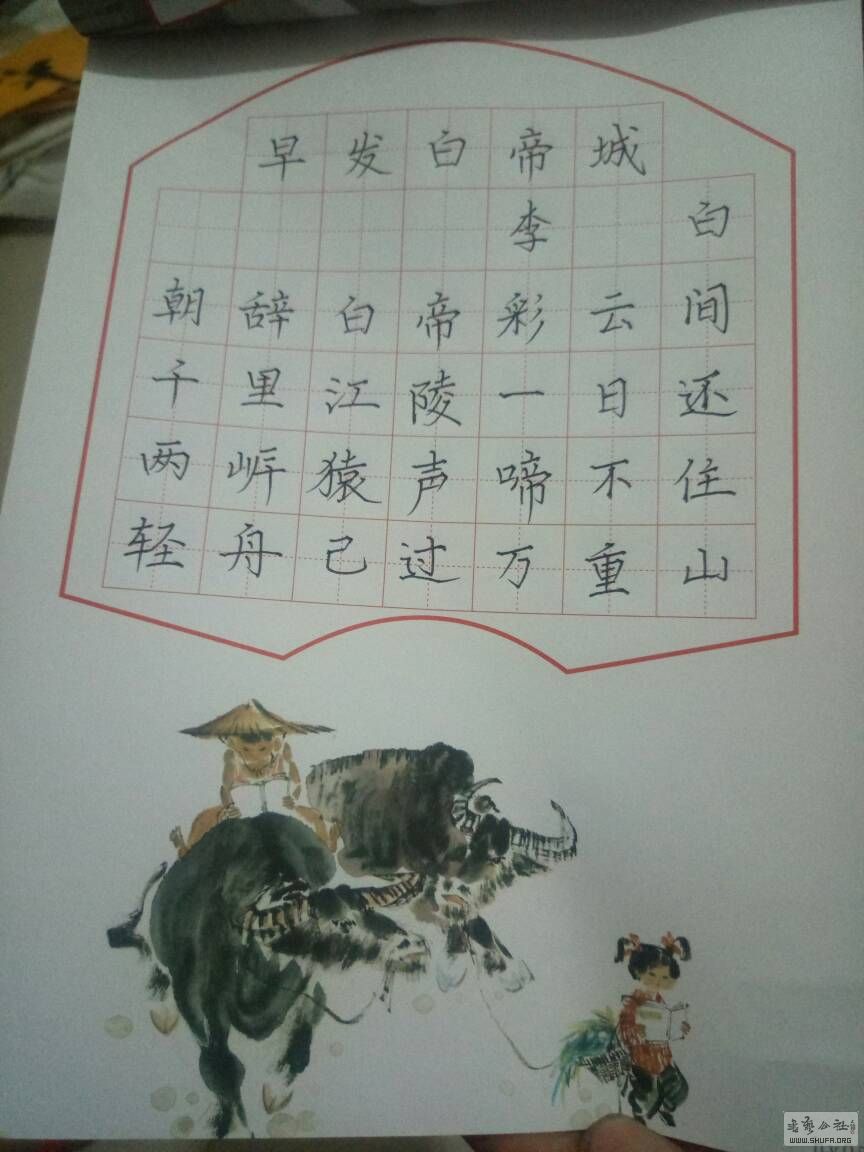 早发白帝城
李白
朝辞白帝彩云间
千里江陵一日还
两岸猿声啼不住
轻舟己过万重山
书艺公社
WWW.SHUFA.ORG